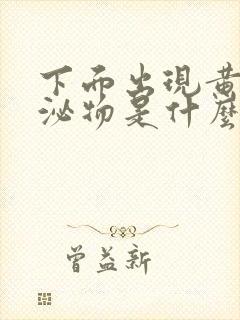 下面出現黃
泌物是什麼
曾益新